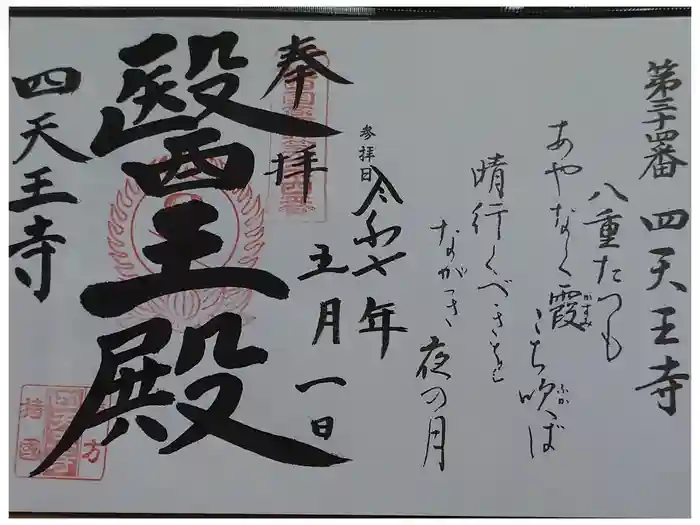 第三十四番 四天王寺
八重たつも
あやなく霞こち吹ば
かすみ
ふか
晴行くべき
ながつき夜の月
参拝日
令和七年
五月一日
奉拝
醫王殿
四天王寺